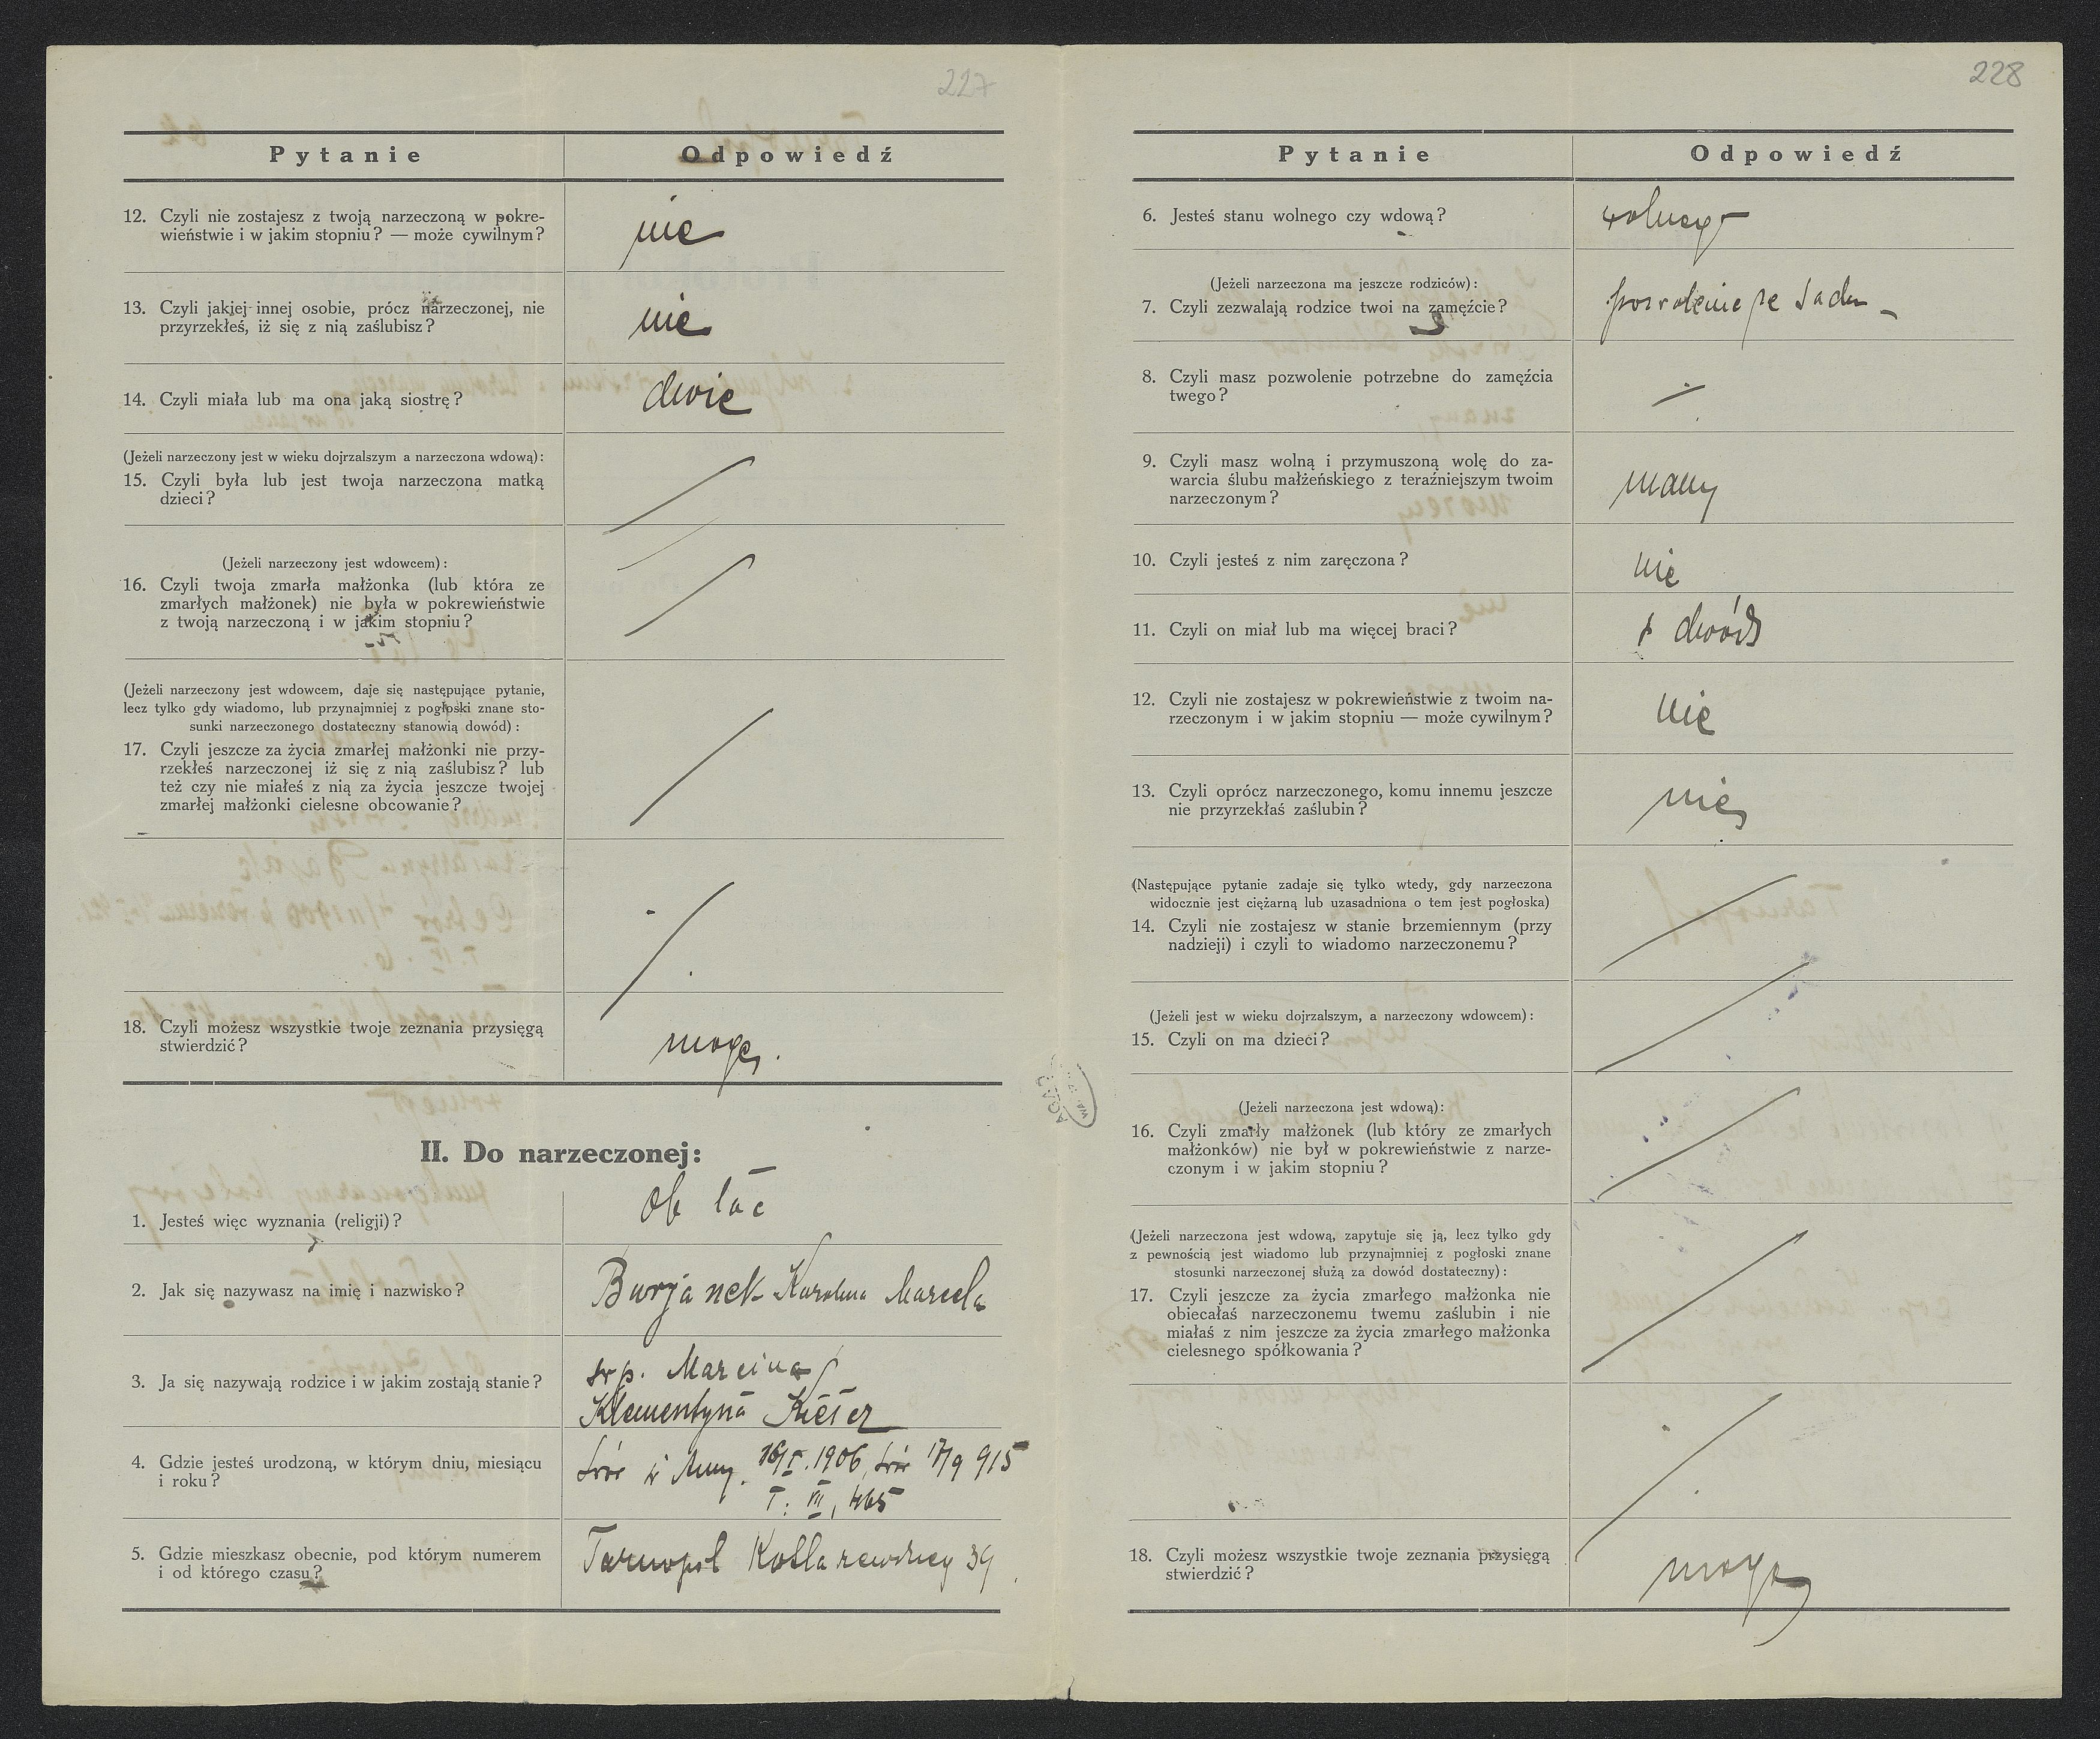 227
Pytanie
Odpowiedź
12. Czyli nie zostajesz z twoją narzeczoną w pokre-
wieństwie i w jakim stopniu? — może cywilnym?
nie
13. Czyli jakiej innej osobie, prócz narzeczonej, nie
przyrzekłeś, iż się z nią zaślubisz?
nie
14. Czyli miała lub ma ona jaką siostrę?
dwie
(Jeżeli narzeczony jest w wieku dojrzalszym a narzeczona wdową):
15. Czyli była lub jest twoja narzeczona matką
dzieci?
(Jeżeli narzeczony jest wdowcem):
16. Czyli twoja zmarła małżonka (lub która ze
zmarłych małżonek) nie była w pokrewieństwie
z twoją narzeczoną i w jakim stopniu?
(Jeżeli narzeczony jest wdowcem, daje się następujące pytanie,
lecz tylko gdy wiadomo, lub przynajmniej z pogłoski znane sto-
sunki narzeczonego dostateczny stanowią dowód):
17. Czyli jeszcze za życia zmarłej małżonki nie przy-
rzekłeś narzeczonej iż się z nią zaślubisz? lub
też czy nie miałeś z nią za życia jeszcze twojej
zmarłej małżonki cielesne obcowanie?
18. Czyli możesz wszystkie twoje zeznania przysięgą
stwierdzić?
mogę.
II. Do narzeczonej:
1. Jesteś więc wyznania (religji)?
Ob łać
2. Jak się nazywasz na imię i nazwisko?
Burjanek Karolina Marcela
3. Ja się nazywają rodzice i w jakim zostają stanie?
śvp. Marcina
Klementyna
4. Gdzie jesteś urodzoną, w którym dniu, miesiącu
i roku?
1906, 17/9 915
T. VII, 465
5. Gdzie mieszkasz obecnie, pod którym numerem
i od którego czasu?
Tarnopol 39
228
Pytanie
Odpowiedź
6. Jesteś stanu wolnego czy wdową?
wolnego
(Jeżeli narzeczona ma jeszcze rodziców):
7. Czyli zezwalają rodzice twoi na zamęźcie?
pozwolenie ze Sadu
8. Czyli masz pozwolenie potrzebne do zamęźcia
twego?
9. Czyli masz wolną i przymuszoną wolę do za-
warcia ślubu małżeńskiego z teraźniejszym twoim
narzeczonym?
mamy
10. Czyli jesteś z nim zaręczona?
nie
11. Czyli on miał lub ma więcej braci?
dwóch
12. Czyli nie zostajesz w pokrewieństwie z twoim na-
rzeczonym i w jakim stopniu — może cywilnym?
nie
13. Czyli oprócz narzeczonego, komu innemu jeszcze
nie przyrzekłaś zaślubin?
nie
(Następujące pytanie zadaje się tylko wtedy, gdy narzeczona
widocznie jest ciężarną lub uzasadniona o tem jest pogłoska)
14. Czyli nie zostajesz w stanie brzemiennym (przy
nadzieji) i czyli to wiadomo narzeczonemu?
(Jeżeli jest w wieku dojrzalszym, a narzeczony wdowcem):
15. Czyli on ma dzieci?
(Jeżeli narzeczona jest wdową):
16. Czyli zmarły małżonek (lub który ze zmarłych
małżonków) nie był w pokrewieństwie z narze-
czonym i w jakim stopniu?
(Jeżeli narzeczona jest wdową, zapytuje się ją, lecz tylko gdy
z pewnością jest wiadomo lub przynajmniej z pogłoski znane
stosunki narzeczonej służą za dowód dostateczny):
17. Czyli jeszcze za życia zmarłego małżonka nie
obiecałaś narzeczonemu twemu zaślubin i nie
miałaś z nim jeszcze za życia zmarłego małżonka
cielesnego spółkowania?
18. Czyli możesz wszystkie twoje zeznania przysięgą
stwierdzić?
mogę